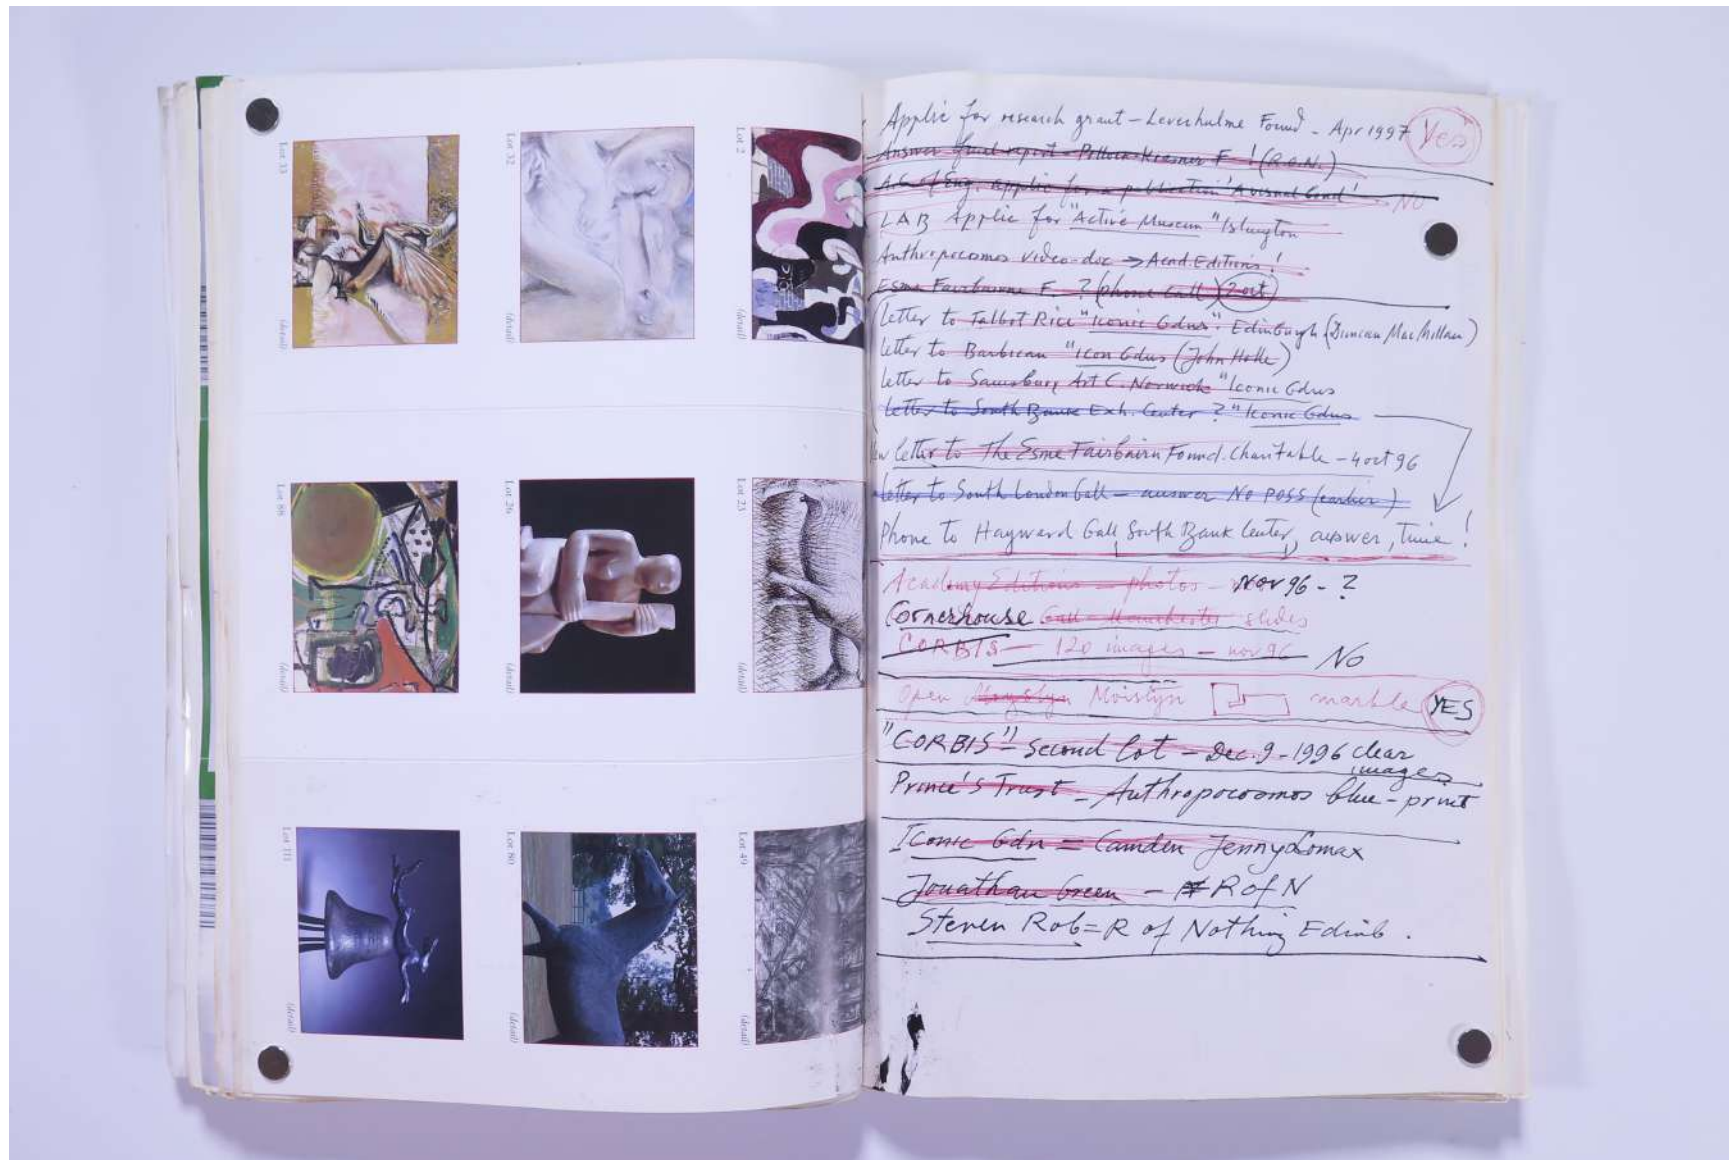 Lot 33
(detail)
Lot 32
(detail)
Lot 2
Lot 88
(detail)
Lot 26
(detail)
Lot 23
Lot 111
(detail)
Lot 80
(detail)
Lot 49
(detail)
Applic for research grant - Leverhulme Found - Apr 1997 Yes
Answer final report - Pollock-Krasner F ! (R.O.N.)
A.C of Eng. applic for a publication 'A visual NO
LAB Applic for "Active Museum" Islington
Anthropocosmos video-doc → Acad. Editions !
Esme Fairbairne F. ? (phone call) 2 oct
letter to Talbot Rice "Iconic Gdns" Edinburgh (Duncan MacMillan)
letter to Barbican "Icon Gdns (John Hoole)
letter to Sainsbury Art C. Norwich "Iconic Gdns
letter to South Bank Exh. Center ? "Iconic Gdns
letter to The Esme Fairbairn Found. Charitable - 4 oct 96
letter to South London Gall - answer No poss (earlier)
Phone to Hayward Gall, South Bank Center, answer, time !
Academy Editions - photos - Nov 96 - ?
Cornerhouse Gall - Manchester slides
CORBIS - 120 images - nov 96 No
Open Moistyn marble YES
"CORBIS" - second lot - Dec. 9 - 1996 clear
images
Prince's Trust - Anthropocosmos blue-print
Iconic Gdn = Camden Jenny Lomax
Jonathan Green - R of N
Steven Rob = R of Nothing Edinb.